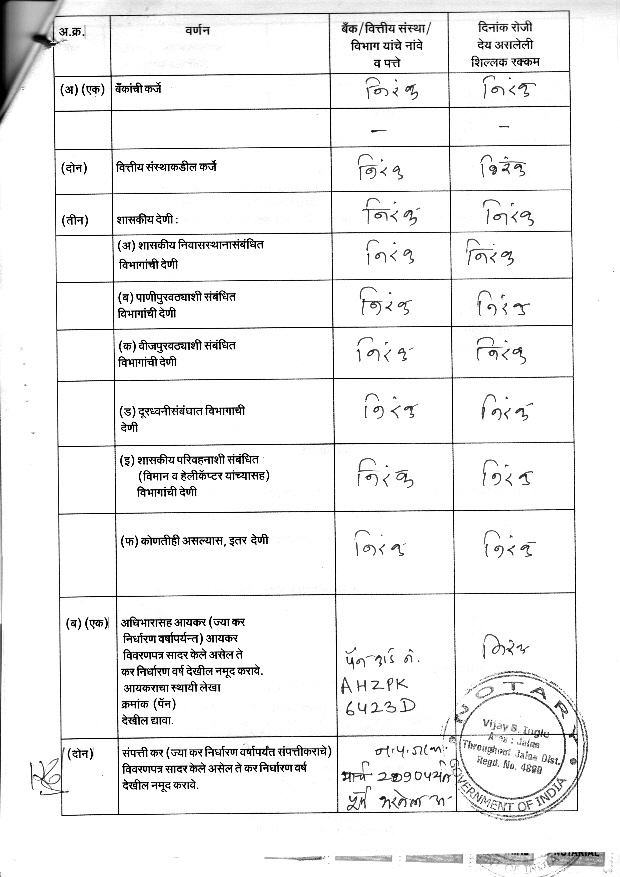 अ.क्र.
वर्णन
बँक/वित्तीय संस्था/
विभाग यांचे नांवे
व पत्ते
दिनांक रोजी
देय असलेली
शिल्लक रक्कम
(अ) (एक)
बँकांची कर्जे
निरंक
निरंक
—
—
(दोन)
वित्तीय संस्थाकडील कर्जे
निरंक
निरंक
(तीन)
शासकीय देणी :
निरंक
निरंक
(अ) शासकीय निवासस्थानासंबंधित
विभागांची देणी
निरंक
निरंक
(ब) पाणीपुरवठ्याशी संबंधित
विभागांची देणी
निरंक
निरंक
(क) वीजपुरवठ्याशी संबंधित
विभागांची देणी
निरंक
निरंक
(ड) दूरध्वनीसंबंधात विभागाची
देणी
निरंक
निरंक
(इ) शासकीय परिवहनाशी संबंधित
(विमान व हेलीकॅप्टर यांच्यासह)
विभागांची देणी
निरंक
निरंक
(फ) कोणतीही असल्यास, इतर देणी
निरंक
निरंक
(ब) (एक)
अधिभारासह आयकर (ज्या कर
निर्धारण वर्षापर्यन्त) आयकर
विवरणपत्र सादर केले असेल ते
कर निर्धारण वर्ष देखील नमूद करावे.
आयकराचा स्थायी लेखा
क्रमांक (पॅन)
देखील द्यावा.
पॅन कार्ड नं.
AHZPK
6423D
निरंक
(दोन)
संपत्ती कर (ज्या कर निर्धारण वर्षापर्यंत संपत्तीकराचे)
विवरणपत्र सादर केले असेल ते कर निर्धारण वर्ष
देखील नमूद करावे.
मार्च
पूर्ण
NOTARY
Vijay S. Ingle
Area : Jalna
Throughout Jalna Dist.
Regd. No. 4899
GOVERNMENT OF INDIA
NOTARIAL
OF INDIA